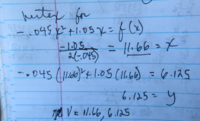 vertex for
-.045x² + 1.05x = f(x)
-1.05 / 2(-.045) = 11.66 = x
-.045(11.66)² + 1.05(11.66) = 6.125
6.125 = y
V = 11.66, 6.125